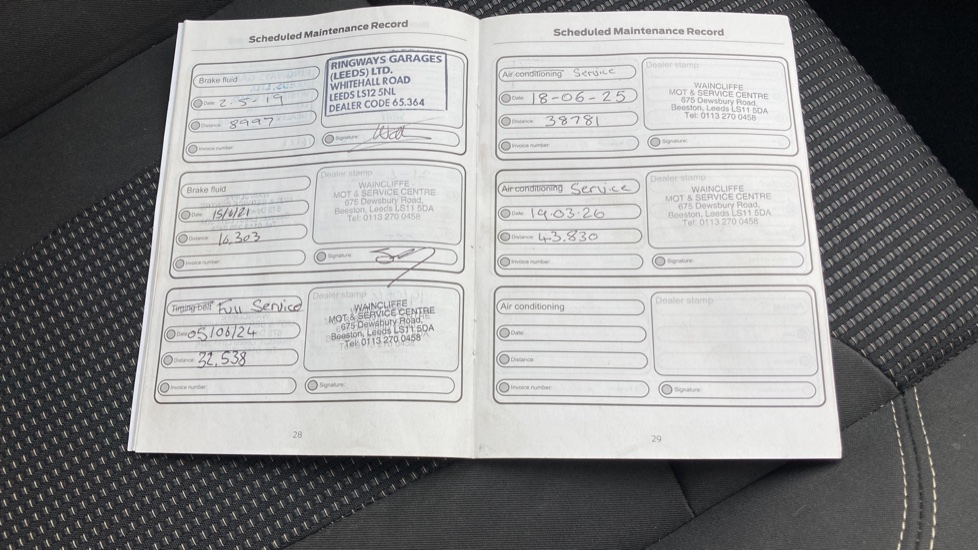 Scheduled Maintenance Record
Brake fluid
Date: 2-5-19
Distance: 8997
Invoice number:
RINGWAYS GARAGES
(LEEDS) LTD.
WHITEHALL ROAD
LEEDS LS12 5NL
DEALER CODE 65.364
Signature:
Brake fluid
Date: 15/6/21
Distance: 16,303
Invoice number:
Dealer stamp
WAINCLIFFE
MOT & SERVICE CENTRE
675 Dewsbury Road,
Beeston, Leeds LS11 5DA
Tel: 0113 270 0458
Signature:
Timing belt Full Service
Date: 05/06/24
Distance: 32,538
Invoice number:
Dealer stamp
WAINCLIFFE
MOT & SERVICE CENTRE
675 Dewsbury Road,
Beeston, Leeds LS11 5DA
Tel: 0113 270 0458
Signature:
28
Scheduled Maintenance Record
Air conditioning Service
Date: 18-06-25
Distance: 38781
Invoice number:
Dealer stamp
WAINCLIFFE
MOT & SERVICE CENTRE
675 Dewsbury Road,
Beeston, Leeds LS11 5DA
Tel: 0113 270 0458
Signature:
Air conditioning Service
Date: 19.03.26
Distance: 43,830
Invoice number:
Dealer stamp
WAINCLIFFE
MOT & SERVICE CENTRE
675 Dewsbury Road,
Beeston, Leeds LS11 5DA
Tel: 0113 270 0458
Signature:
Air conditioning
Date:
Distance:
Invoice number:
Dealer stamp
Signature:
29